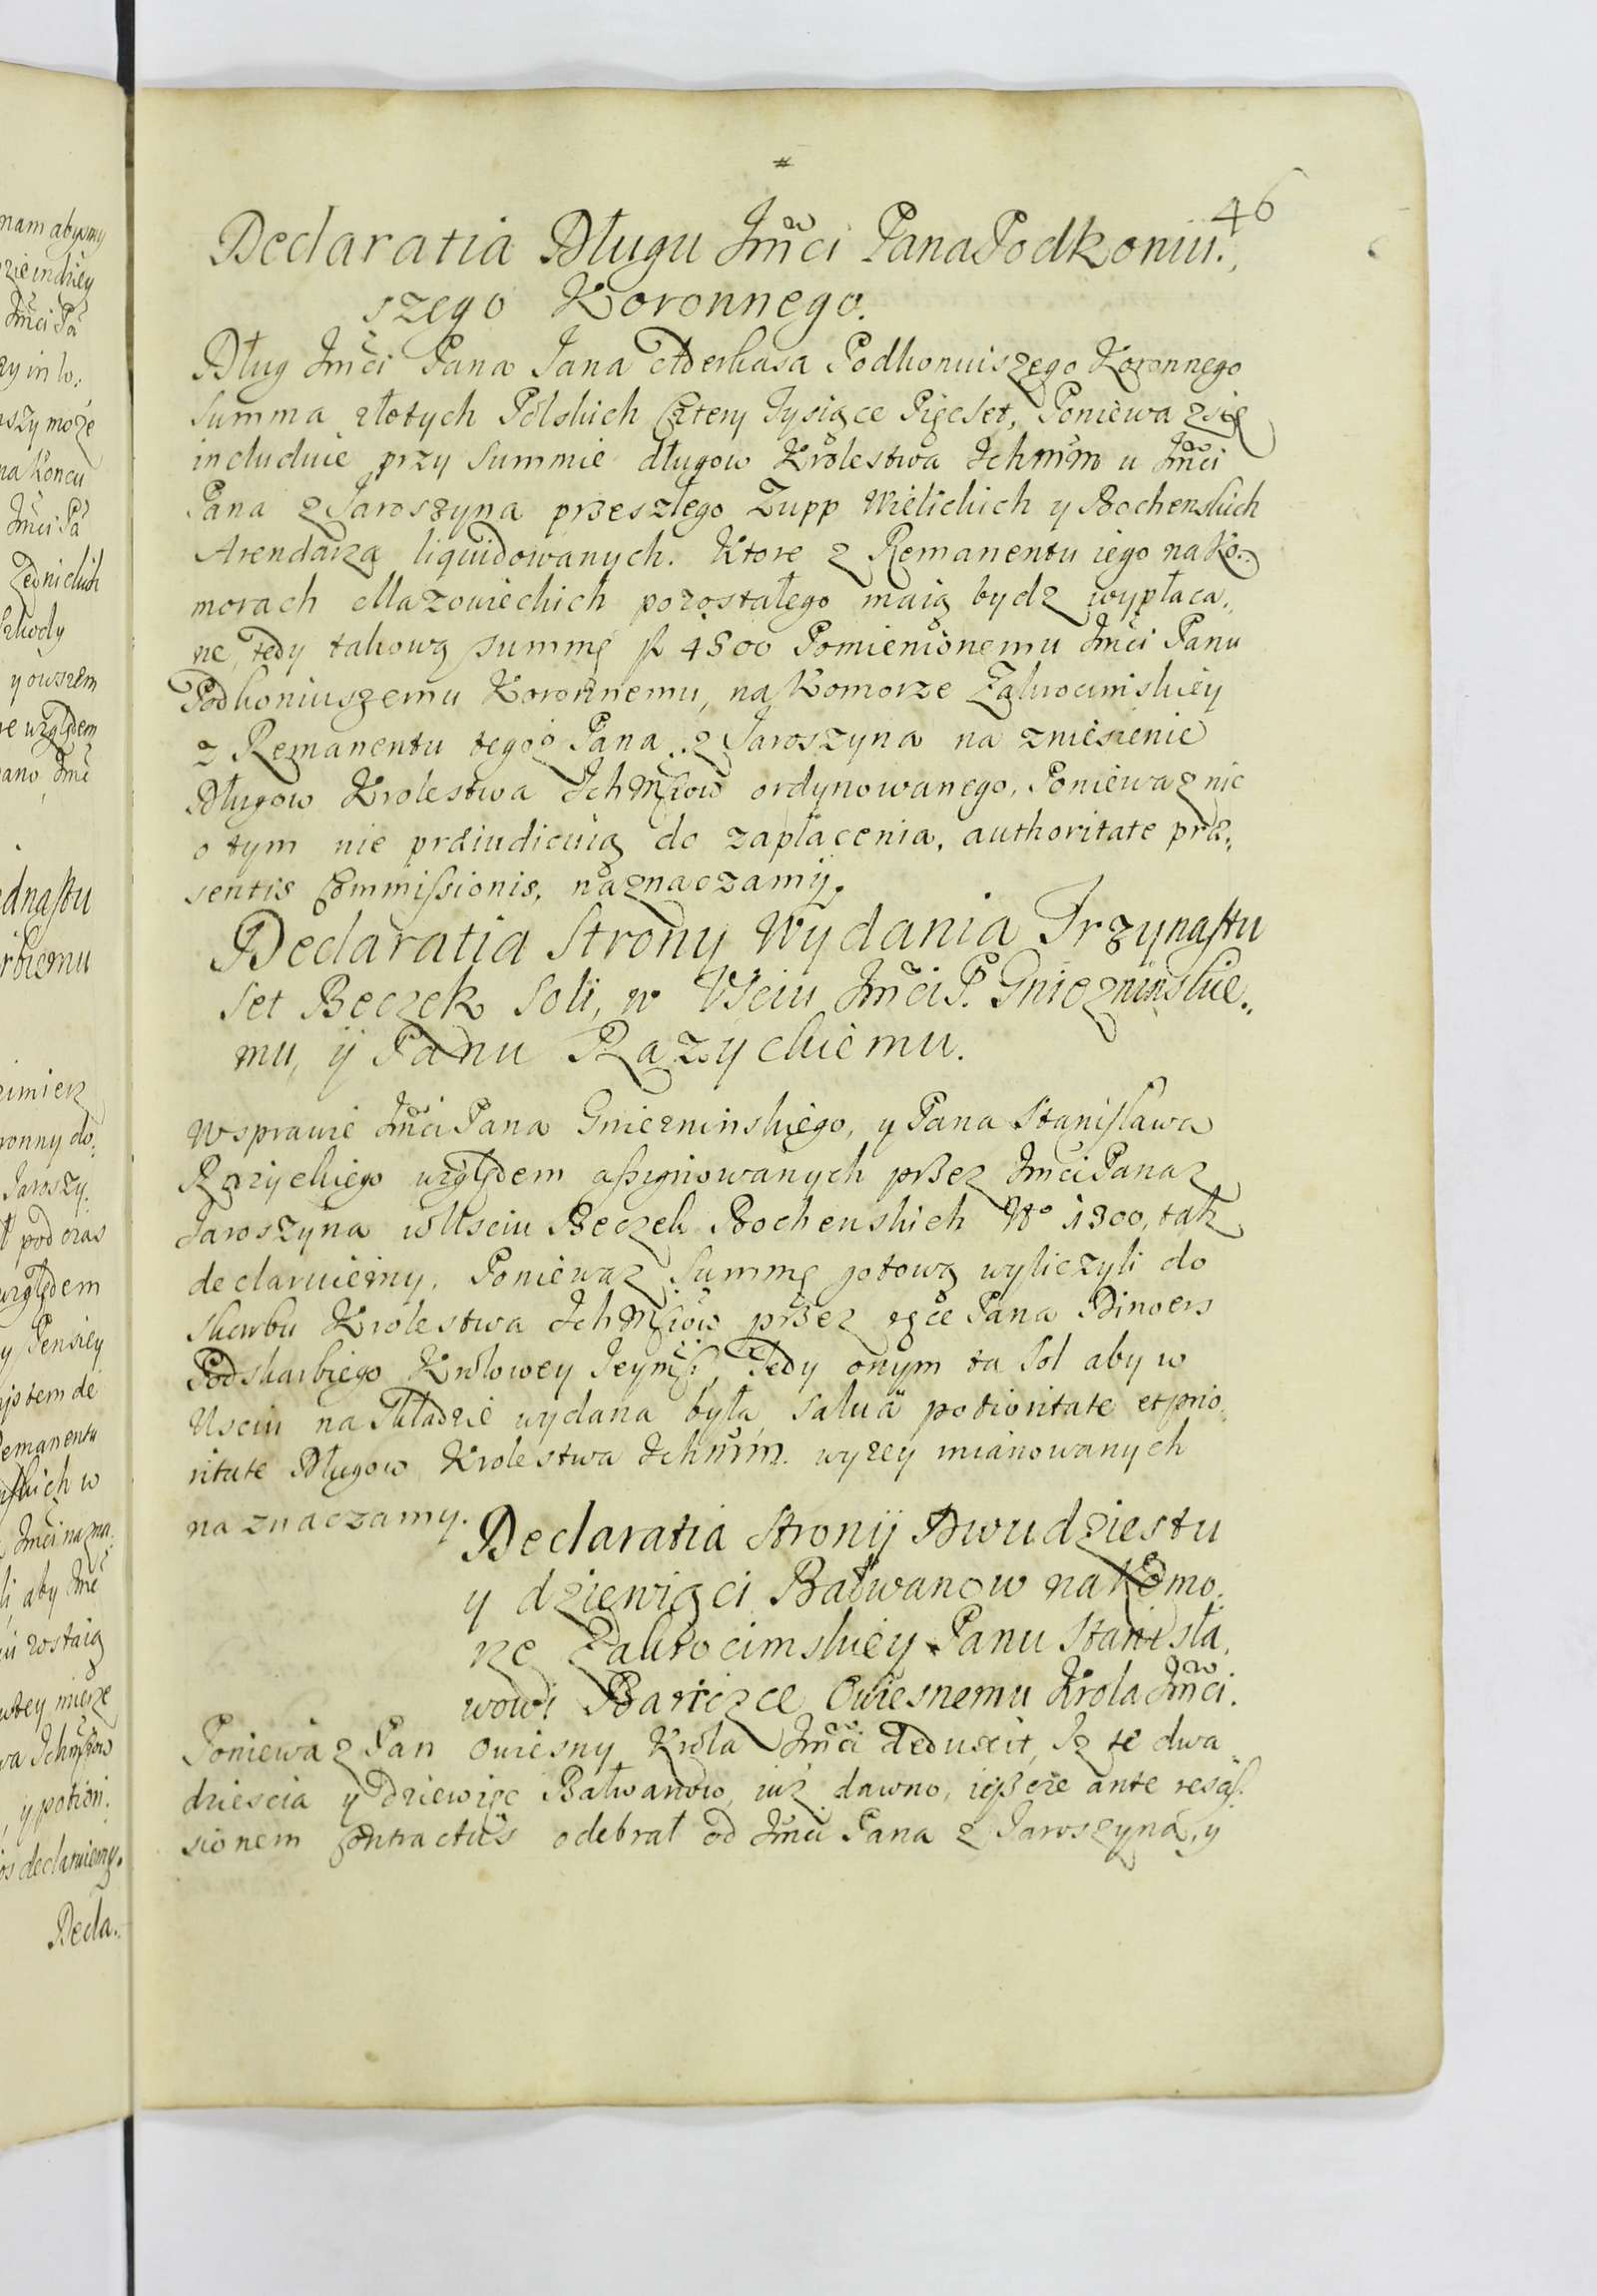 #
46
Declaratia Długu Jmci Pana Podkoniu:,
szego Koronnego.
Dług Jmci Pana Jana Aderkasa Podkoniuszego Koronnego
summa złotych Polskich Cztery Tysiące Pięcset, Poniewaz się
includuie przy summie długow Krolestwa Ichmm u Jmci
Pana z Jaroszyna przeszłego Zupp Wielickich y Bochenskich
Arendarza liquidowanych. Ktore z Remanentu iego na Ko:
morach Mazowieckich pozostałego maią bydz wypłaca,
ne, tedy takową summę fl 4500 Pomienionemu Jmci Panu
Podkoniuszemu Koronnemu, na Komorze Zakrocimskiey
z Remanentu tegoz Pana z Jaroszyna na zniesienie
Długow Krolestwa Ichmsciow ordynowanego, Poniewaz nic
o tym nie præiudicuią do zapłacenia, authoritate præ,
sentis Commissionis, naznaczamy.
Declaratia Strony Wydania Trzynastu
set Beczek Soli, w Vsciu Jmci P. Gniezninskie,
mu, y Panu Razyckiemu.
W sprawie Jmci Pana Gniezninskiego, y Pana Stanisława
Razyckiego względem assignowanych przez Jmci Pana z
Jaroszyna w Usciu Beczek Bochenskich No 1300, tak
declaruiemy. Poniewaz Summę gotową wyliczyli do
skarbu Krolestwa Ichmsciow przez ręce Pana Binoers
Podskarbiego Krolowey Jeymsci, Tedy onym ta Sol aby w
Usciu na składzie wydana była, salua potioritate et prio,
ritate Długow Krolestwa Ichmm. wyzey mianowanych
naznaczamy.
Declaratia strony Dwudziestu
y dziewiąci Bałwanow na Komo,
rze Zakrocimskiey Panu Stanisła,
wowi Bariczce Owiesnemu Krola Jmci.
Poniewaz Pan Owiesny Krola Jmci deduxit, Iz te dwa,
dziescia y Dziewięc Bałwanow, iuz dawno, ieszcze ante resciss
sionem contractus odebrał od Jmci Pana z Jaroszyna, y